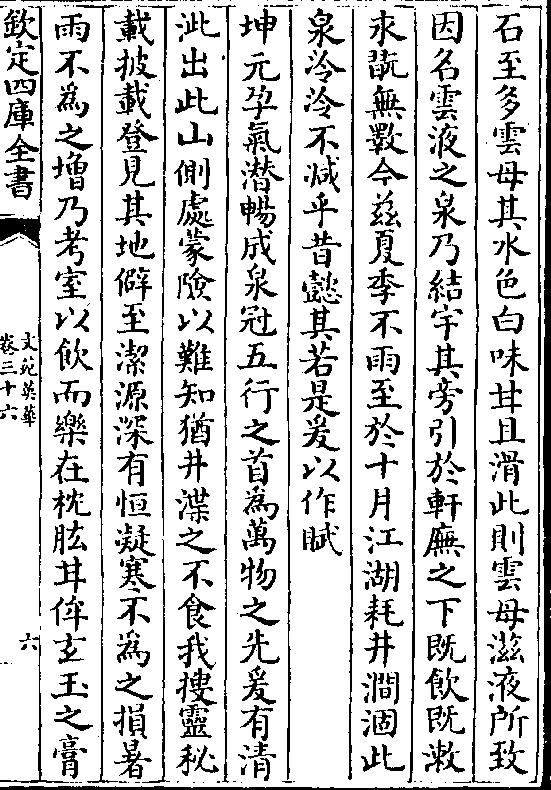 石至多雲母其水色白味甘且滑此則雲母滋液所致
因名雲液之泉乃結宇其旁引於軒廡之下既飲既漱
永翫無斁今兹夏季不雨至於十月江湖耗井澗涸此
泉泠泠不減乎昔懿其若是爰以作賦
坤元孕氣潛暢成泉冠五行之首為萬物之先爰有清
泚出此山側處蒙險以難知猶井渫之不食我搜靈秘
載披載登見其地僻至潔源深有恒凝寒不為之損暑
雨不為之增乃考室以飲而樂在枕肱甘侔玄玉之膏
欽定四庫全書
文苑英華
卷三十六
六